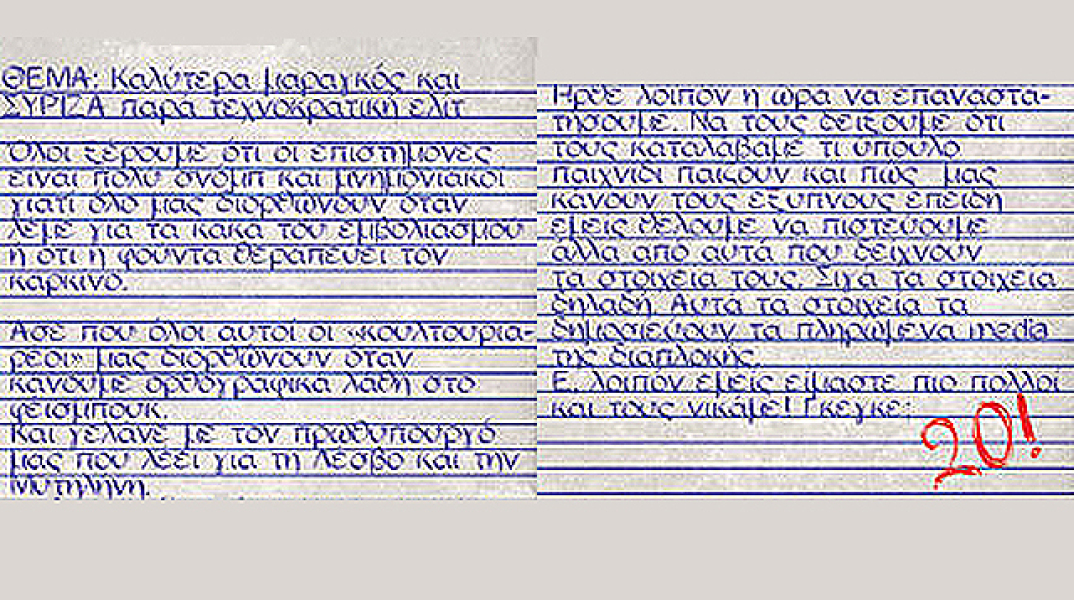 ΘΕΜΑ: Καλύτερα μαραγκός και
ΣΥΡΙΖΑ παρά τεχνοκρατική ελίτ
Όλοι ξέρουμε ότι οι επιστήμονες
είναι πολύ σνόμπ και μνημονιακοί
γιατί όλο μας διορθώνουν όταν
λέμε για τα κακά του εμβολιασμού
ή ότι η φούντα θεραπεύει τον
καρκίνο.
Άσε που όλοι αυτοί οι «κουλτουρια-
ρέοι» μας διορθώνουν όταν
κάνουμε ορθογραφικά λάθη στο
φέισμπουκ.
Και γελάνε με τον πρωθυπουργό
μας που λέει για τη Λέσβο και την
Μυτηλήνη.
Ήρθε λοιπόν η ώρα να επαναστα-
τήσουμε. Να τους δείξουμε ότι
τους καταλάβαμε τι ύπουλο
παιχνίδι παίζουν και πως μας
κάνουν τους έξυπνους επειδή
εμείς θέλουμε να πιστεύουμε
άλλα από αυτά που δείχνουν
τα στοιχεία τους. Σιγά τα στοιχεία
δηλαδή. Αυτά τα στοιχεία τα
δημοσιεύουν τα πληρωμένα media
της διαπλοκής.
Ε, λοιπόν εμείς είμαστε πιο πολλοί
και τους νικάμε! Γκέγκε;
20!